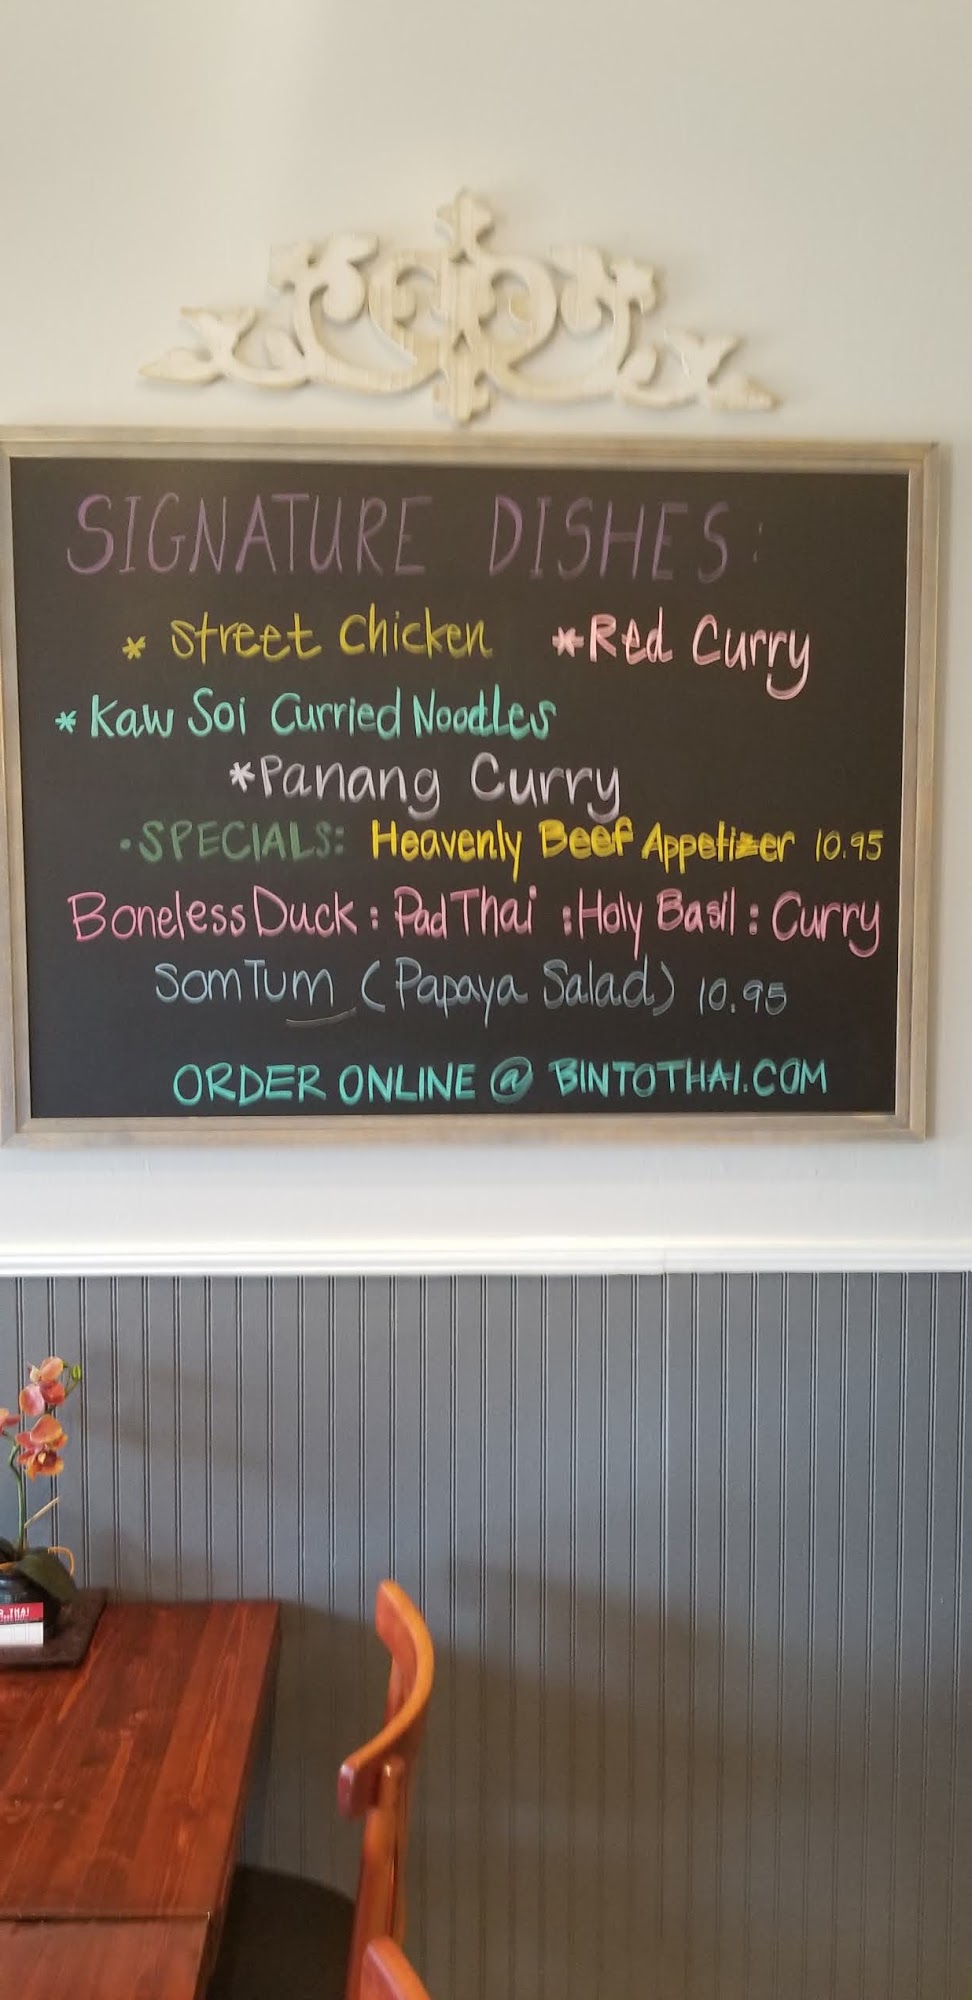 SIGNATURE DISHES:
* Street Chicken *Red Curry
* Kaw Soi Curried Noodles
*Panang Curry
•SPECIALS: Heavenly Beef Appetizer 10.95
Boneless Duck : Pad Thai : Holy Basil : Curry
Som Tum (Papaya Salad) 10.95
ORDER ONLINE @ BINTOTHAI.COM
THAI